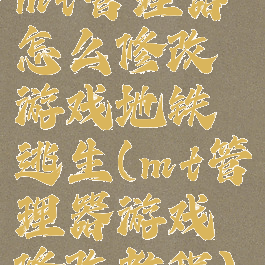 mt管理器
怎么修改
游戏地铁
逃生(mt管
理器游戏
修改教程)